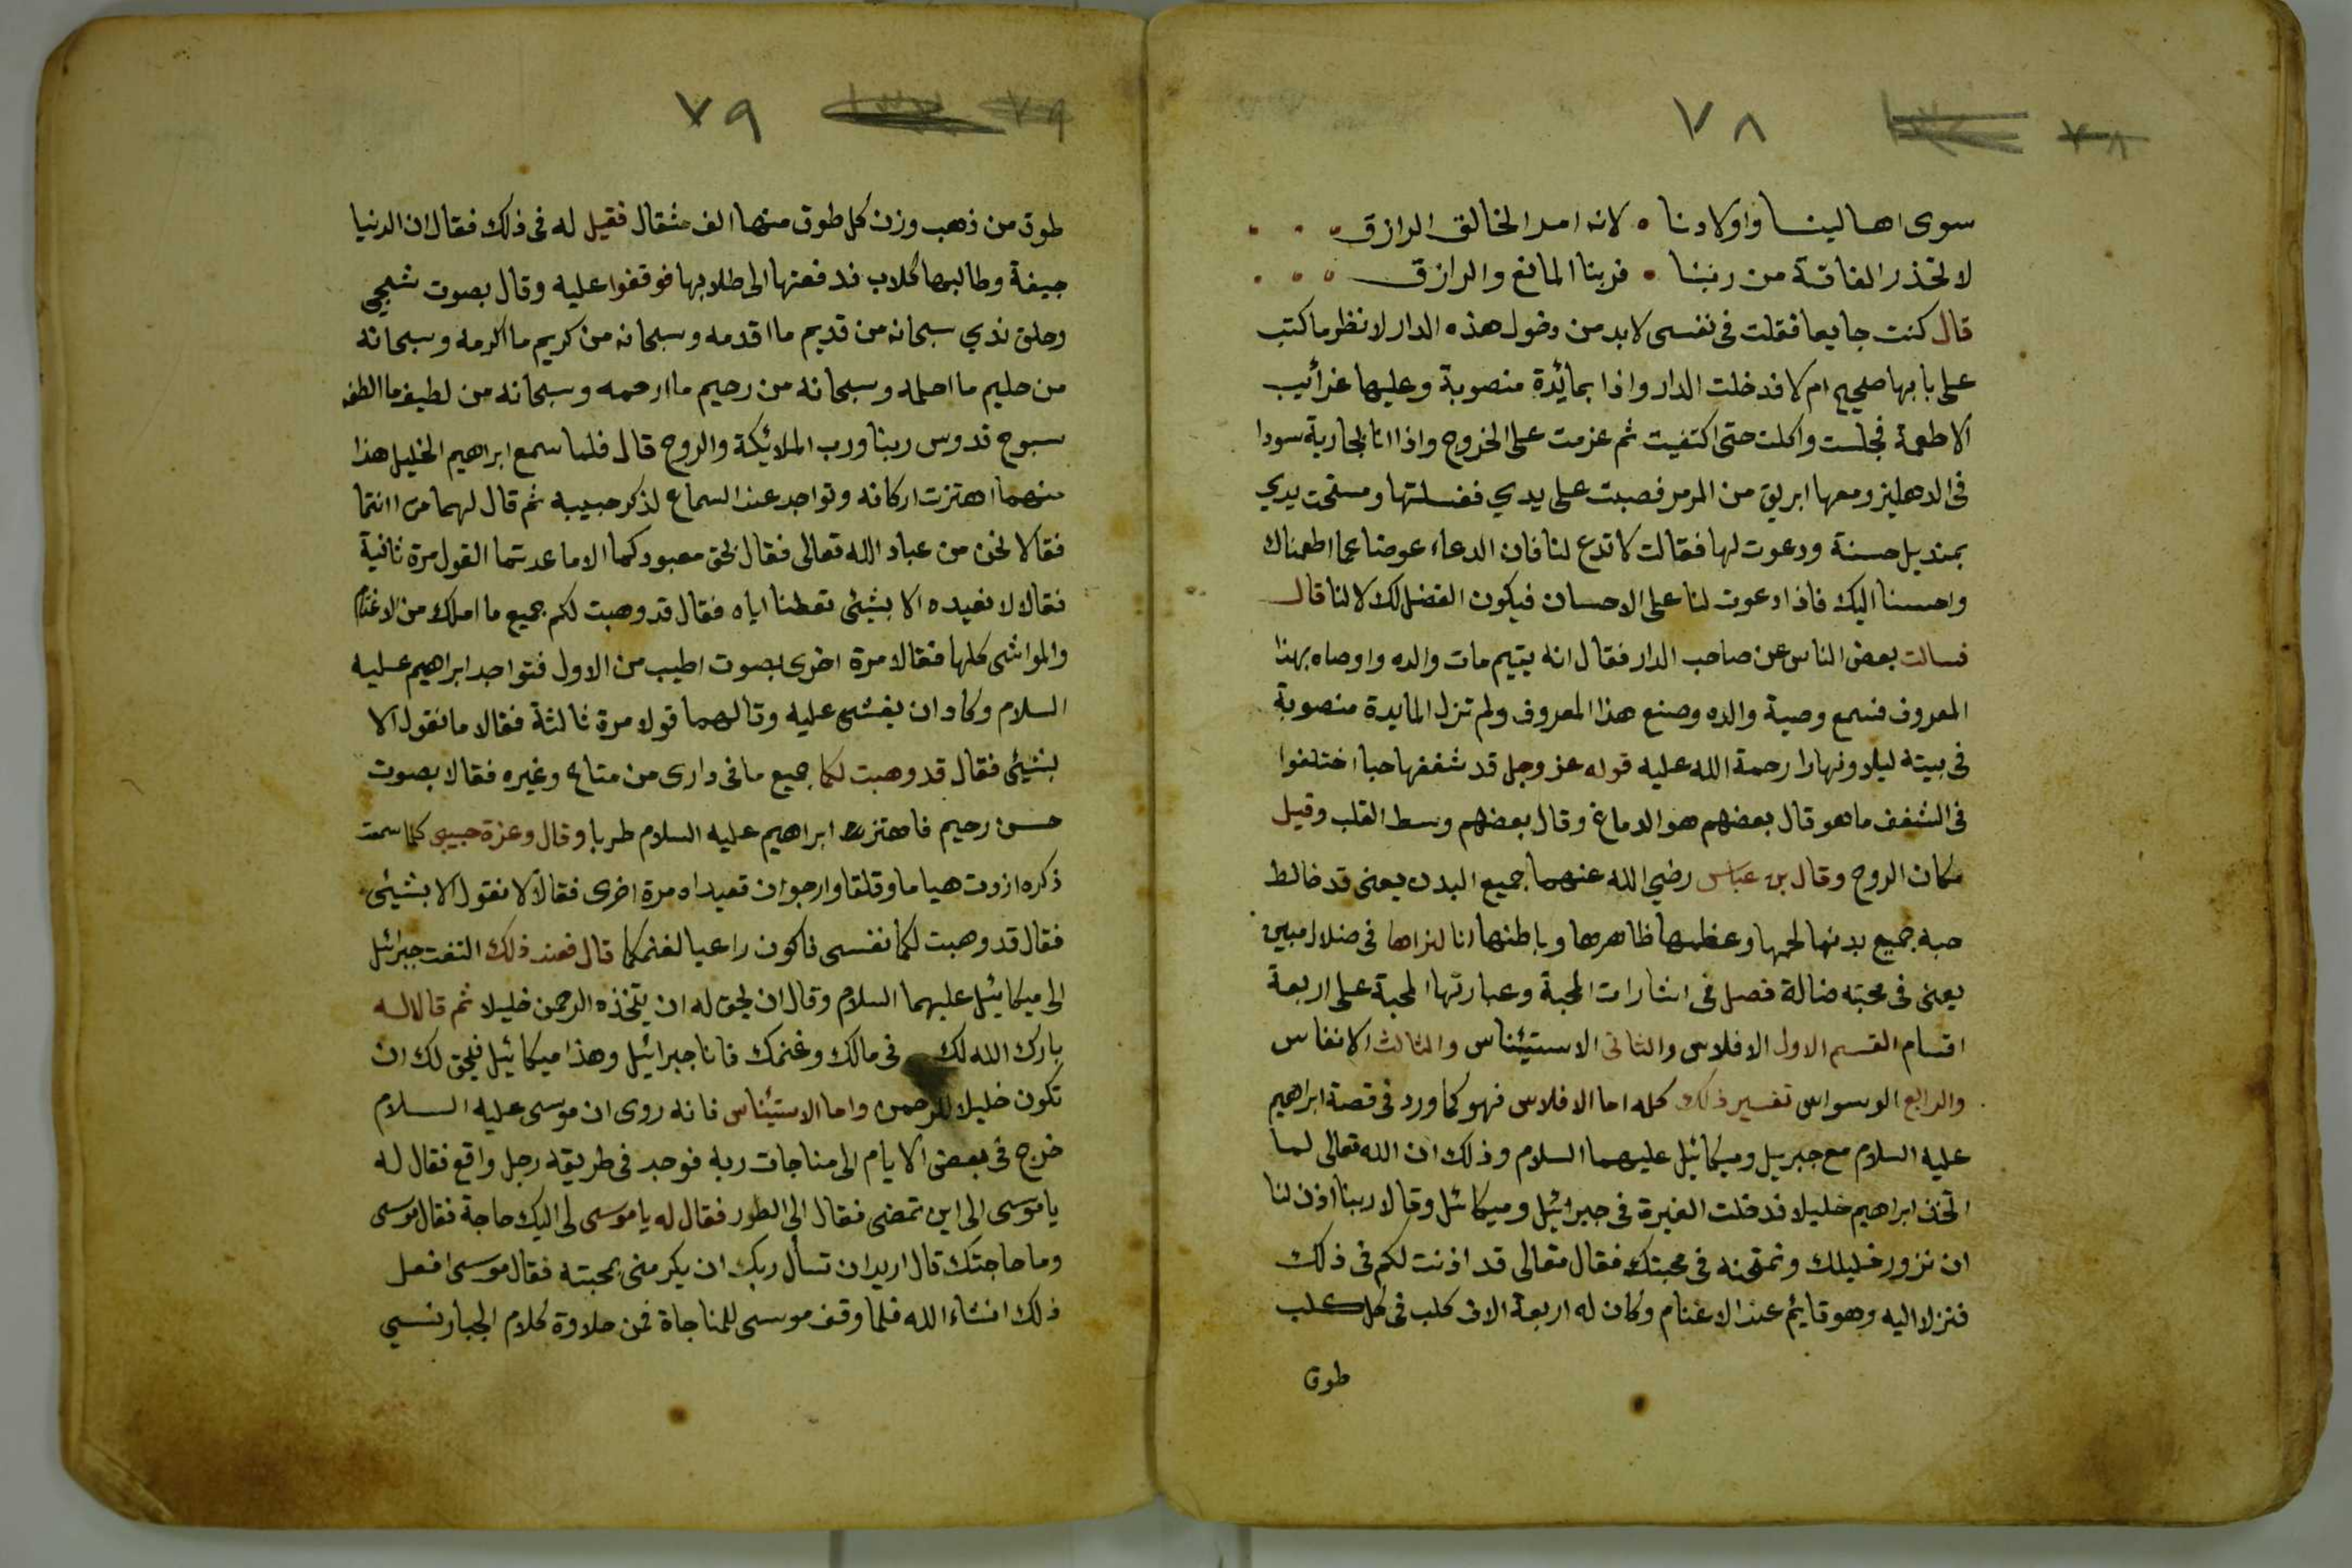 ٧٨
سوى اهالينا واولادنا ۰ لانه امر الخالق الرازق
لا تحذر الفاقة من ربنا ۰ فربنا المانع والرازق
قال كنت جايعا فقلت فى نفسى لا بد من دخول هذه الدار لانظر ما كتب
على بابها صحيح ام لا فدخلت الدار واذا بمائدة منصوبة وعليها غرائب
الاطعمة فجلست واكلت حتى اكتفيت ثم عزمت على الخروج واذا انا بجارية سودا
فى الدهليز ومعها ابريق من المرمر فصبت على يدي فغسلتها ومسحت يدي
بمنديل حسنة ودعوت لها فقالت لا تدع لنا فان الدعاء عوضا عما اطعمناك
واحسنا اليك فاذا دعوت لنا على الاحسان فيكون الفضل لك لا لنا قال
فسالت بعض الناس عن صاحب الدار فقال انه يتيم مات والده واوصاه بهذا
المعروف فسمع وصية والده وصنع هذا المعروف ولم تزل المايدة منصوبة
فى بيته ليلا ونهارا رحمة الله عليه قوله عز وجل قد شغفها حبا اختلفوا
فى الشغف ما هو قال بعضهم هو الدماغ وقال بعضهم وسط القلب وقيل
مكان الروح وقال بن عباس رضي الله عنهما جميع البدن يعنى قد خالط
حبه جميع بدنها لحمها وعظمها ظاهرها وباطنها انا لنراها فى ضلال مبين
يعنى فى محبته ضالة فصل فى اشارات المحبة وعبارتها المحبة على اربعة
اقسام القسم الاول الافلاس والثانى الاستيئناس والثالث الانفاس
والرابع الوسواس تفسير ذلك كله اما الافلاس فهو كما ورد فى قصة ابراهيم
عليه السلام مع جبريل وميكائيل عليهما السلام وذلك ان الله تعالى لما
اتخذ ابراهيم خليلا فدخلت الغيرة فى جبرائيل وميكائيل وقالا ربنا اذن لنا
ان نزور خليلك ونمتحنه فى محبتك فقال تعالى قد اذنت لكم فى ذلك
فنزلا اليه وهو قايم عند الاغنام وكان له اربعة الاف كلب فى كل كلب
طوق
٧٩
طوق من ذهب وزن كل طوق منها الف مثقال فقيل له فى ذلك فقال ان الدنيا
جيفة وطالبها كلاب فدفعتها الى طلابها فوقفوا عليه وقال بصوت شجي
وحلق ندي سبحانه من قديم ما اقدمه وسبحانه من كريم ما اكرمه وسبحانه
من حليم ما احلمه وسبحانه من رحيم ما ارحمه وسبحانه من لطيف ما الطفه
سبوح قدوس ربنا ورب الملائيكة والروح قال فلما سمع ابراهيم الخليل هذا
منهما اهتزت اركانه وتواجد عند السماع لذكر حبيبه ثم قال لهما من انتما
فقالا نحن من عباد الله تعالى فقال بحق معبودكما الا ما عدتما القول مرة ثانية
فقالا لا نعيده الا بشيئ تعطنا اياه فقال قد وهبت لكم جميع ما املك من الاغنام
والمواشى كلها فقالا مرة اخرى بصوت اطيب من الاول فتواجد ابراهيم عليه
السلام وكاد ان يغشى عليه وقال لهما قولا مرة ثالثة فقالا ما نقول الا
بشيئ فقال قد وهبت لكما جميع ما فى دارى من متاع وغيره فقالا بصوت
حسن رحيم فاهتزت ابراهيم عليه السلام طربا وقال وعزة حبيبى كلما سمعت
ذكره ازدت هياما وقلقا وارجو ان تعيداه مرة اخرى فقالا لا نقول الا بشيئ
فقال قد وهبت لكما نفسى فاكون راعيا لغنمكما قال فعند ذلك التفت جبرائيل
الى ميكائيل عليهما السلام وقال ان يحق له ان يتخذه الرحمن خليلا ثم قالا له
بارك الله لك فى مالك وغنمك فانا جبرائيل وهذا ميكائيل فيحق لك ان
تكون خليلا للرحمن واما الاستيئناس فانه روى ان موسى عليه السلام
خرج فى بعض الايام الى مناجات ربه فوجد فى طريقه رجل واقع فقال له
يا موسى الى اين تمضى فقال الى الطور فقال له يا موسى لى اليك حاجة فقال موسى
وما حاجتك قال اريد ان تسأل ربك ان يكرمنى بمحبته فقال موسى افعل
ذلك انشاء الله فلما وقف موسى للمناجاة فمن حلاوة كلام الجبار نسي